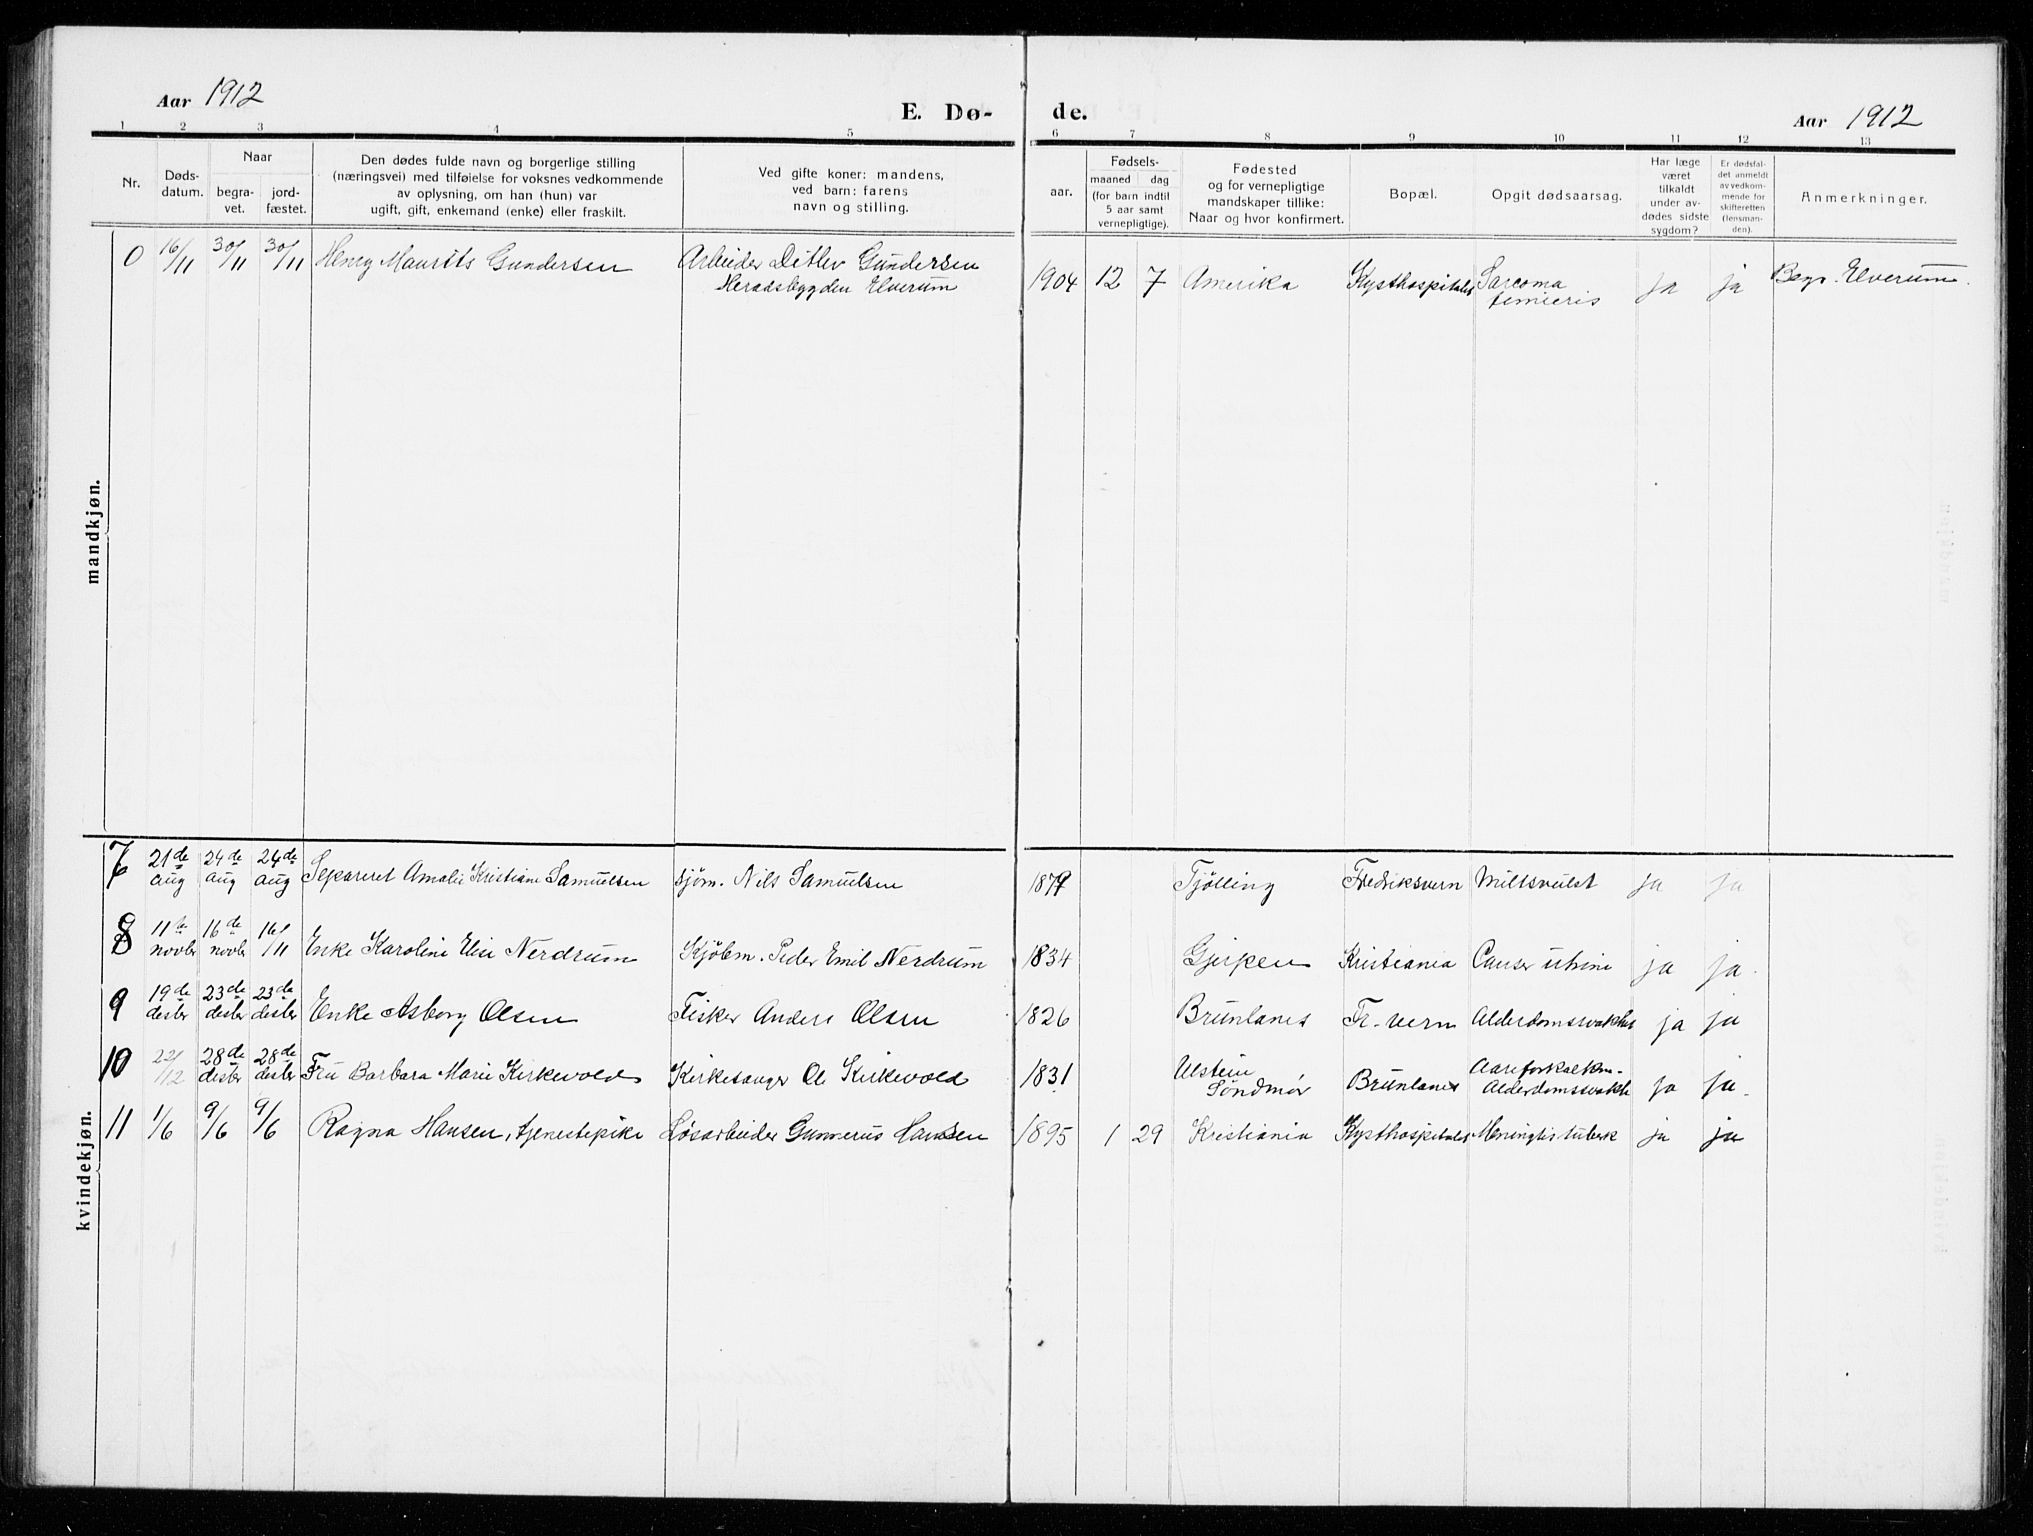 Aar 1912
E. Dø-
de.
Aar 1912
1 2 3 4 5 6 7 8 9 10 11 12 13
Nr.
Døds-
datum.
Naar
begra-
vet.
jord-
fæstet.
Den dødes fulde navn og borgerlige stilling
(næringsvei) med tilføielse for voksnes vedkommende
av oplysning, om han (hun) var
ugift, gift, enkemand (enke) eller fraskilt.
Ved gifte koner: mandens,
ved barn: farens
navn og stilling.
aar.
Fødsels-
maaned dag
(for barn indtil
5 aar samt
vernepligtige).
Fødested
og for vernepligtige
mandskaper tillike:
Naar og hvor konfirmert.
Bopæl.
Opgit dødsaarsag.
Har læge
været
tilkaldt
under av-
dødes sidste
sygdom?
Er dødsfal-
det anmeldt
av vedkom-
mende for
skifteretten
(lensman-
den).
Anmerkninger.
mandkjøn.
0 16/11 30/11 30/11 Henry Maurits Gundersen Arbeider Ditlev Gundersen
Heradsbygden Elverum
1904 12 7 Amerika Kysthospitalet Sarcoma ja ja Begr. Elverum.
kvindekjøn.
7 21de aug 24de aug 24de aug Separeret Amalie Kristiane Samuelsen sjøm. Nils Samuelsen 1879 Tjølling Fredriksvern Miltsvulst ja ja
8 11te novbr 16de novbr 16/11 Enke Karoline Elise Nerdrum Kjøbm. Peder Emil Nerdrum 1834 Gjerpen Kristiania Cancer uterine ja ja.
9 19de desbr 23de desbr 23de desbr Enke Asborg Olsen Fisker Anders Olsen 1826 Brunlanes Fr.vern Alderdomssvakhet ja ja
10 22/12 28de desbr 28de desbr Fru Barbara Marie Kirkevold Kirkesanger Ole Kirkevold 1831 Ulstein
Søndmør Brunlanes Aareforkalkn.
Alderdomssvakh ja ja.
11 1/6 9/6 9/6 Ragna Hansen, tjenestepike Løsarbeider Gunnerus Hansen 1895 1 29 Kristiania Kysthospitalet Meningtis tuberk ja ja